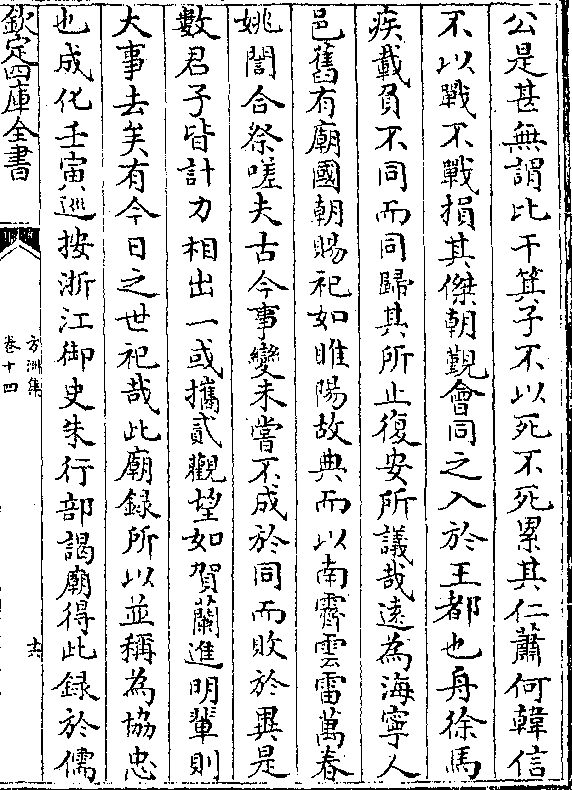 公是甚無謂比干箕子不以死不死累其仁蕭何韓信
不以戰不戰損其傑朝覲會同之入於王都也舟徐馬
疾載負不同而同歸其所止復安所議哉遠為海寧人
邑舊有廟國朝賜祀如睢陽故典而以南霽雲雷萬春
姚誾合祭嗟夫古今事變未嘗不成於同而敗於異是
數君子皆計力相出一或攜貳觀望如賀蘭進明輩則
大事去矣有今日之世祀哉此廟錄所以並稱為協忠
也成化壬寅巡按浙江御史朱行部謁廟得此録於儒
欽定四庫全書
方洲集
卷十四
十六